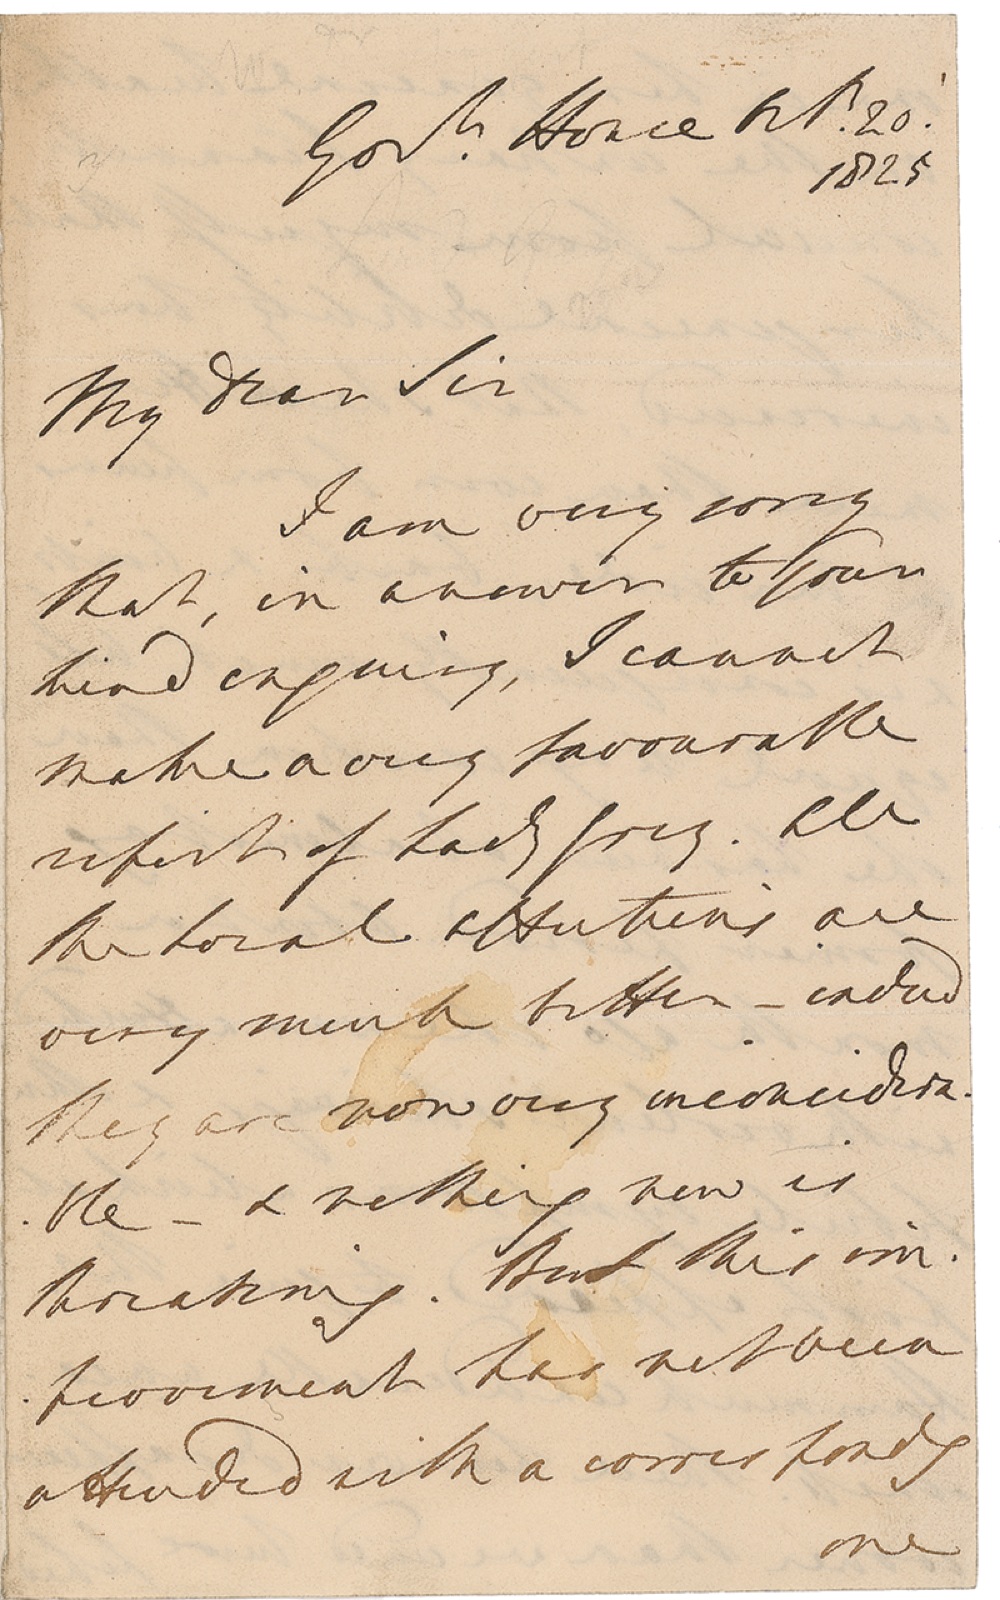 Govt. House
1825
My dear Sir
I am very sorry
that, in answer to your
kind enquiry, I cannot
make a very favourable
report of Lady Grey. All
the local affections are
very much better - indeed
they are now very inconsidera-
-ble - & nothing new is
threatening. But this im-
-provement has not been
attended with a correspondg
one